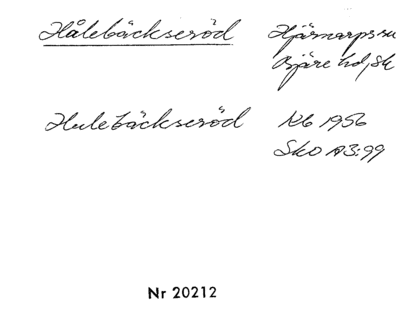 Hålebäckseröd Hjärnarps sn
Bjäre hd, Sk
Hulebäckseröd Kb 1956
Sko A3:99
Nr 20212